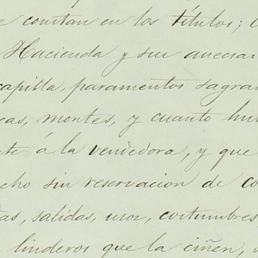 e constan en los títulos; C
Hacienda y sus anexas
capilla, paramentos sagra
cas, montes, y cuanto hu
te á la vendedora, y que
cho sin reservacion de co
as, salidas, usos, costumbres
linderos que la ciñen,